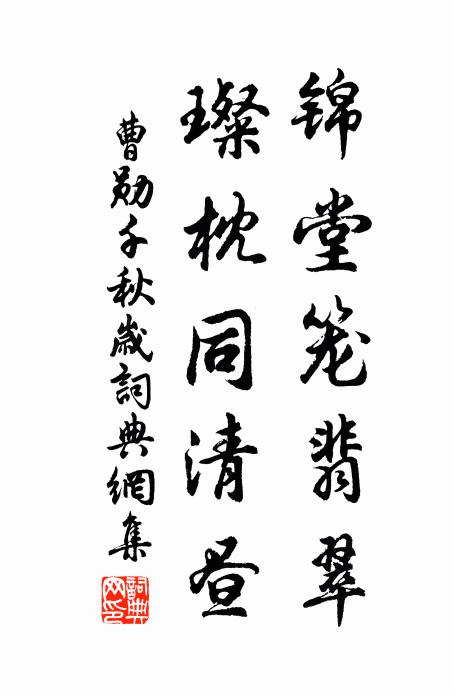 锦堂笼翡翠
璨枕同清昼
曹勋千秋歲詞典網集
詞典网印